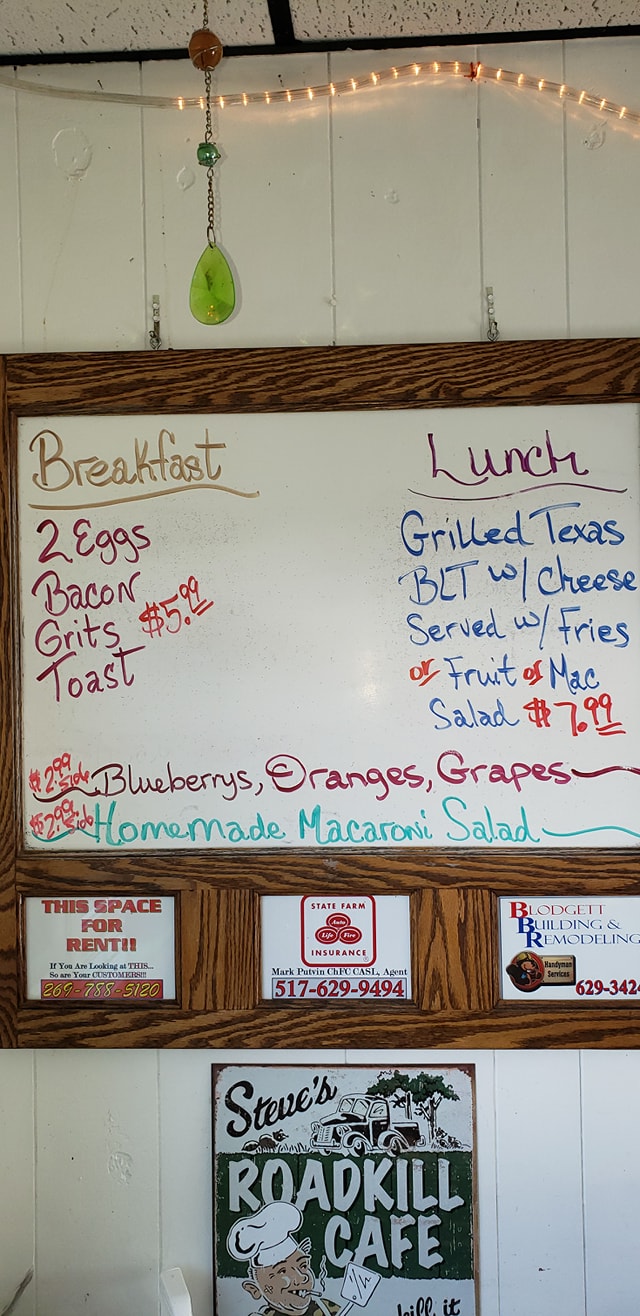 Breakfast
2 Eggs
Bacon
Grits
Toast
$5.99
Lunch
Grilled Texas
BLT w/ Cheese
Served w/ Fries
or Fruit or Mac
Salad $7.99
$2.99 side Blueberrys, Oranges, Grapes
$2.99 side Homemade Macaroni Salad
THIS SPACE
FOR
RENT!!
If You Are Looking at THIS...
So are Your CUSTOMERS!!!
269-788-5120
STATE FARM
Auto
Life Fire
INSURANCE
Mark Putvin ChFC CASL, Agent
517-629-9494
BLODGETT
BUILDING &
REMODELING
Handyman
Services
629-342
Steve's
ROADKILL
CAFE
kill it